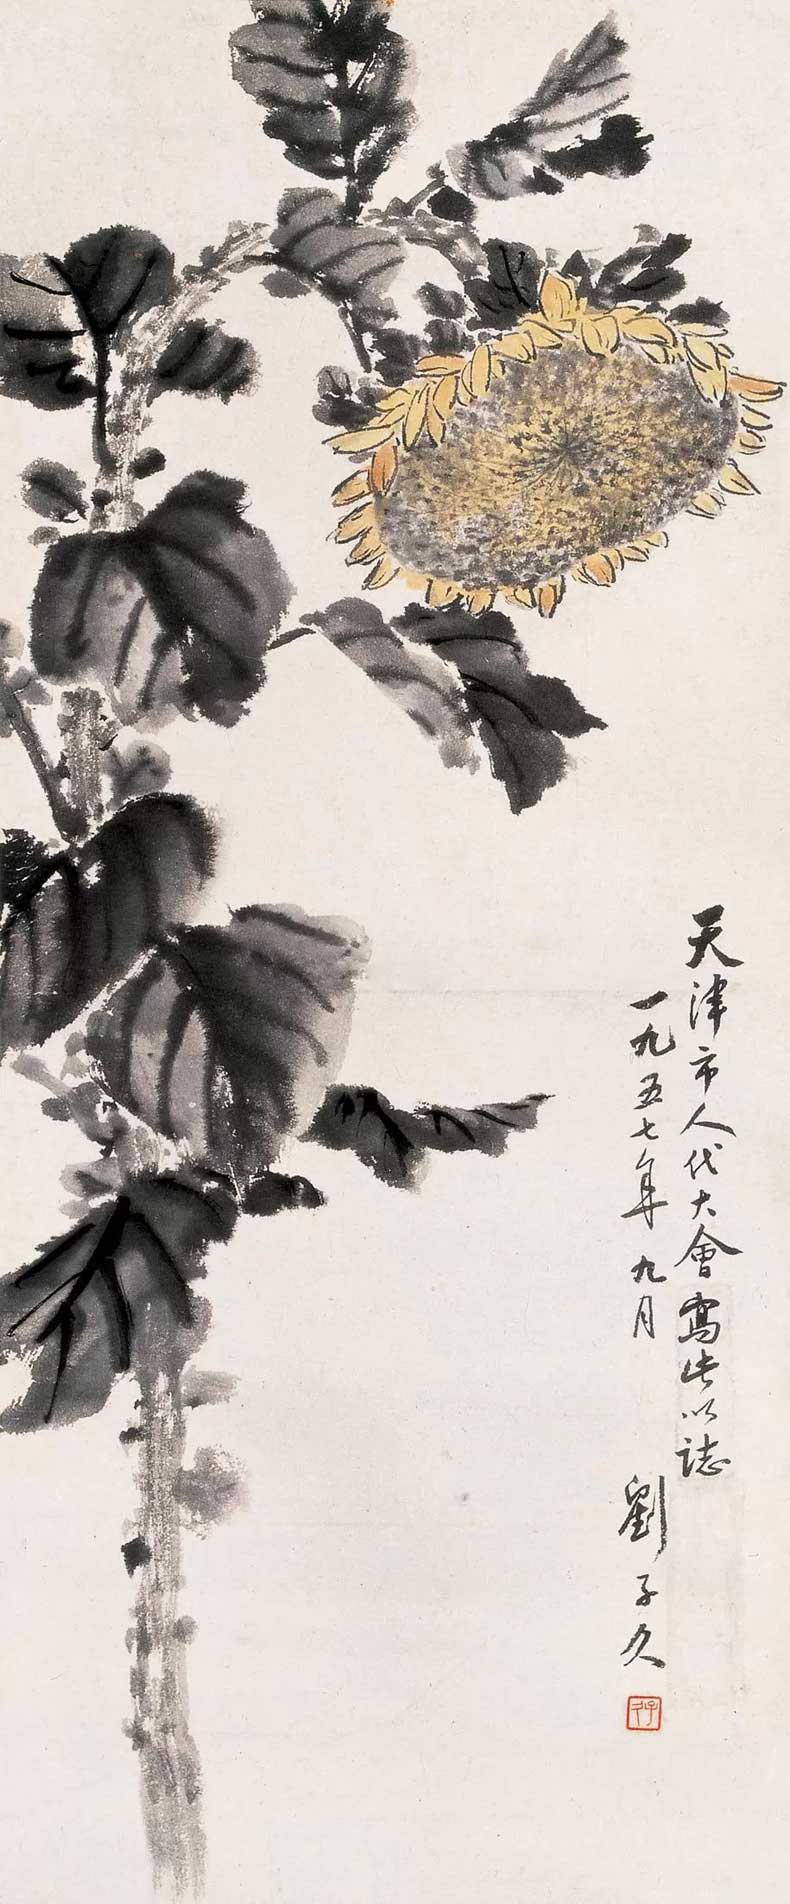 天津市人代大會寫此以誌
一九五七年九月
劉子久
子久